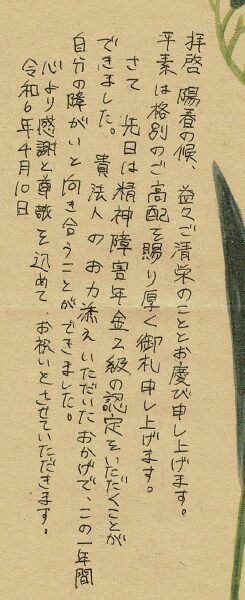 拝啓 陽春の候、益々ご清栄のこととお慶び申し上げます。
平素は格別のご高配を賜り厚く御札申し上げます。
さて 先日は精神障害年金2級の認定をいただくことが
できました。貴法人のお力添えいただいたおかげで、この一年間
自分の障がいと向き合うことができました。
心より感謝と尊敬を込めて、お祝いとさせていただきます。
令和6年4月10日